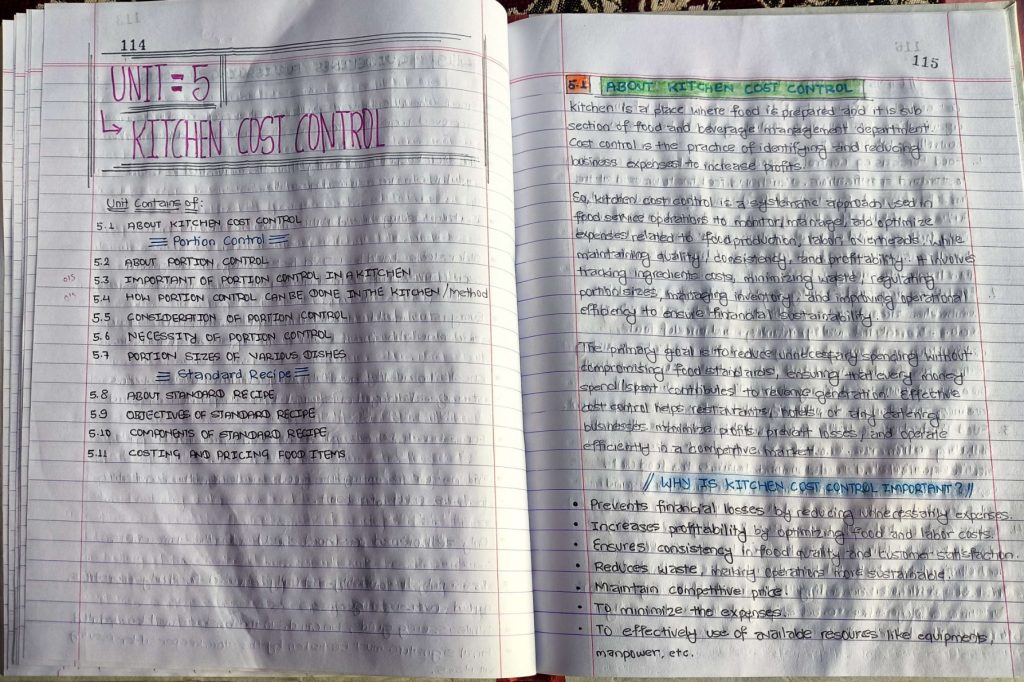 114
UNIT = 5
↳ KITCHEN COST CONTROL
Unit Contains of:
5.1 ABOUT KITCHEN COST CONTROL
Portion Control
5.2 ABOUT PORTION CONTROL
015 5.3 IMPORTANT OF PORTION CONTROL IN A KITCHEN
5.4 HOW PORTION CONTROL CAN BE DONE IN THE KITCHEN / Method
5.5 CONSIDERATION OF PORTION CONTROL
5.6 NECESSITY OF PORTION CONTROL
5.7 PORTION SIZES OF VARIOUS DISHES
Standard Recipe
5.8 ABOUT STANDARD RECIPE
5.9 OBJECTIVES OF STANDARD RECIPE
5.10 COMPONENTS OF STANDARD RECIPE
5.11 COSTING AND PRICING FOOD ITEMS
115
5.1 ABOUT KITCHEN COST CONTROL
Kitchen is a place where food is prepared and it is sub
section of food and beverage management department.
Cost control is the practice of identifying and reducing
business expenses to increase profits.
So, kitchen cost control is a systematic approach used in
food service operations to monitor, manage, and optimize
expenses related to food production, labor, overheads while
maintaining quality, consistency, and profitability. It involves
tracking ingredients costs, minimizing waste, regulating
portion sizes, managing inventory, and improving operational
efficiency to ensure financial sustainability.
The primary goal is to reduce unnecessary spending without
compromising food standards, ensuring that every money
spend/spent contributes to revenue generation. Effective
cost control helps restaurants, hotels, or any catering
businesses minimize profits, prevent losses, and operate
efficiently in a competitive market.
// WHY IS KITCHEN COST CONTROL IMPORTANT? //
• Prevents financial losses by reducing unnecessarily expenses.
• Increases profitability by optimizing food and labor costs.
• Ensures consistency in food quality and customer satisfaction.
• Reduces waste, making operations more sustainable.
• Maintain competitive price.
• To minimize the expenses.
• To effectively use of available resources like equipments,
manpower, etc.